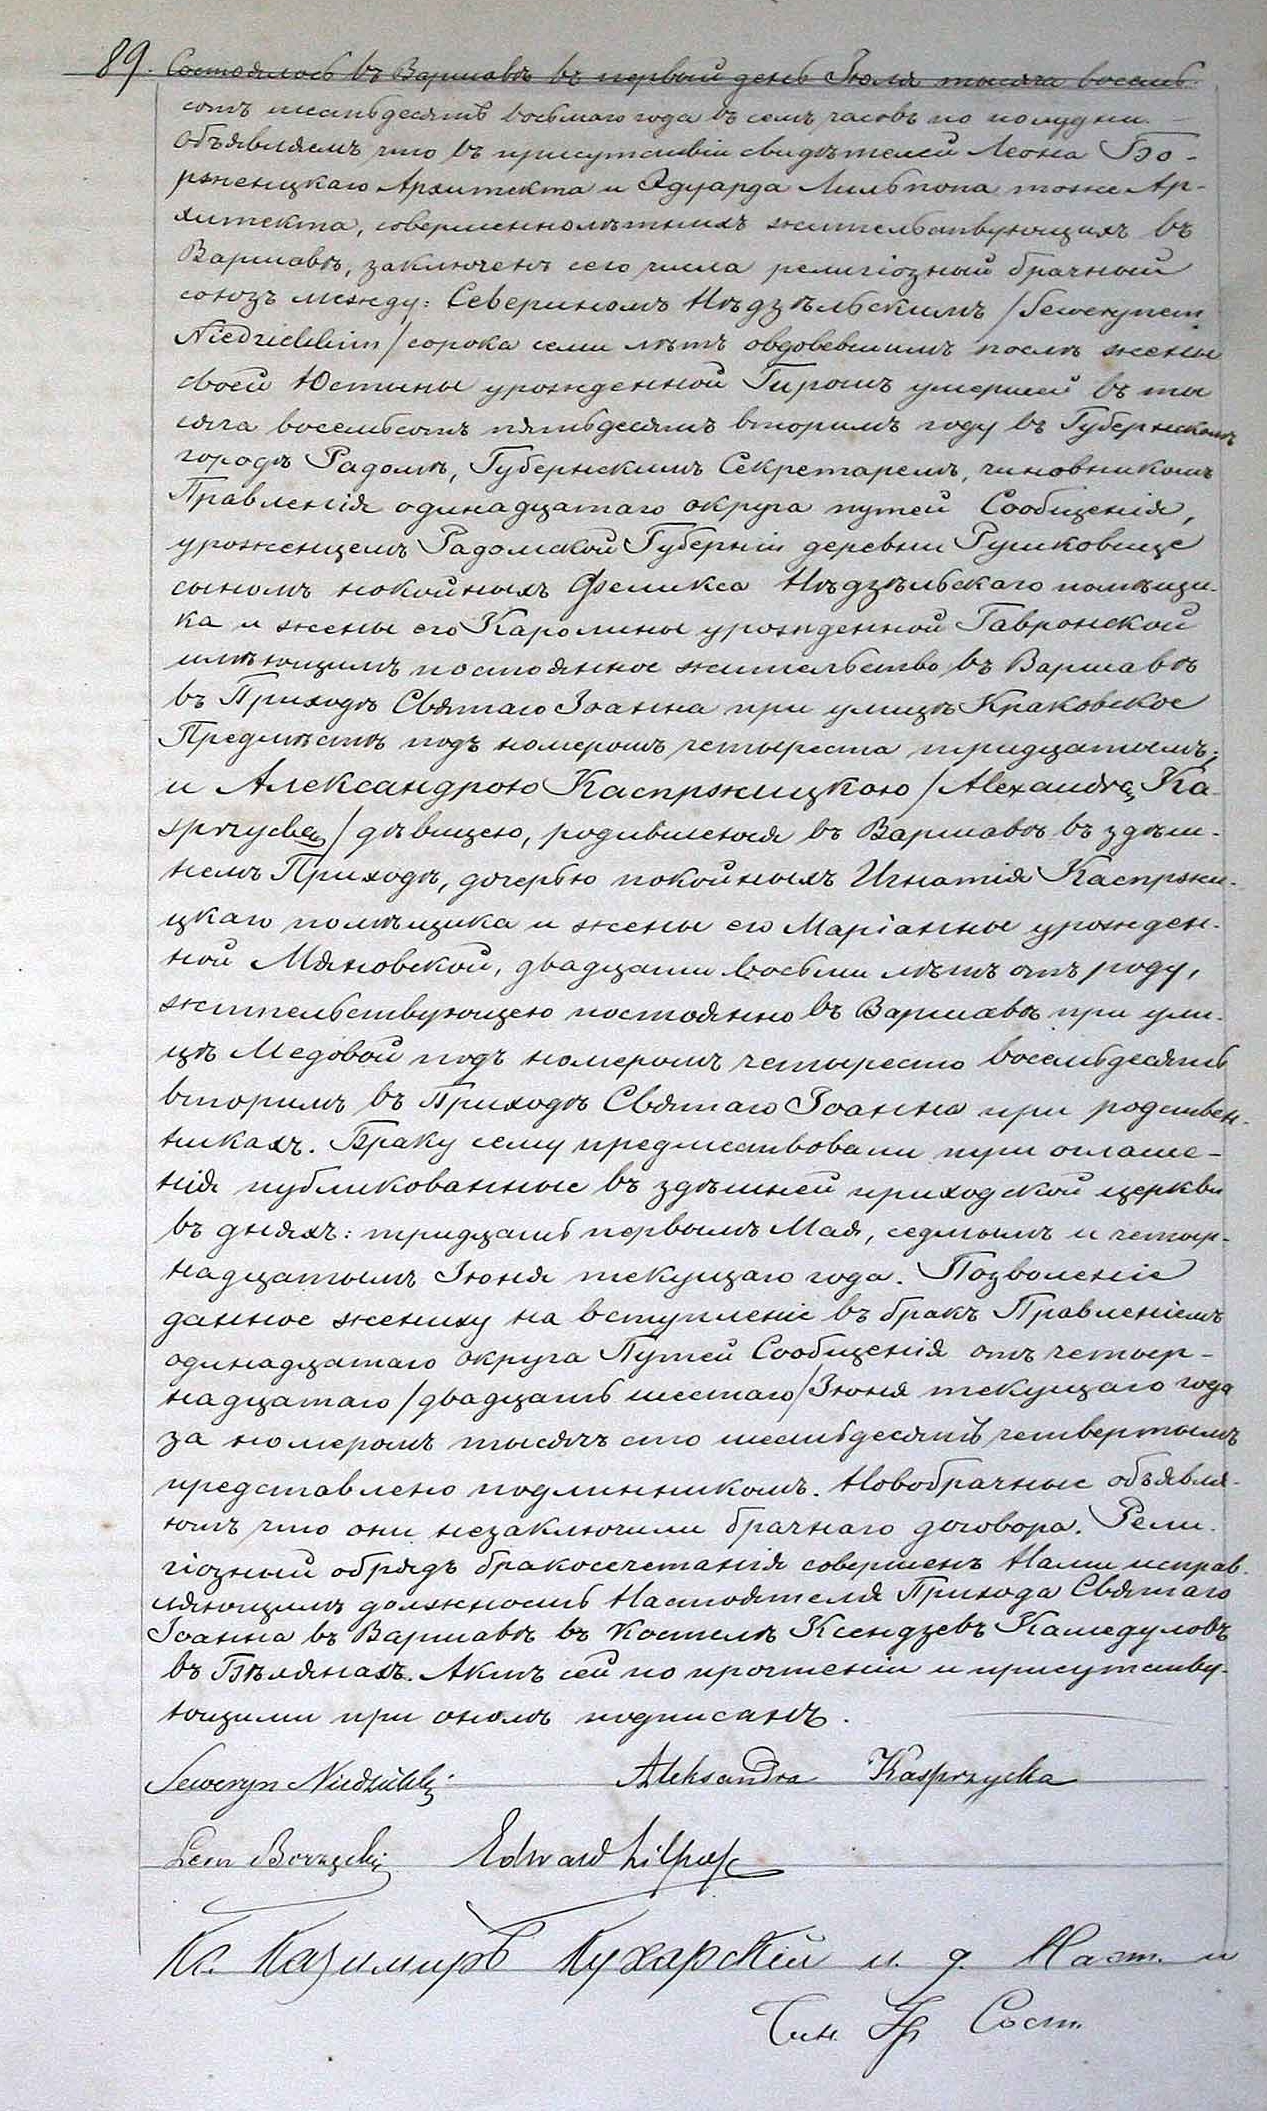 89. Состоялось въ Варшавѣ въ первый день Іюля тысяча восемь
сотъ шестьдесятъ восьмаго года въ семь часовъ по полудни. —
Объявляемъ что въ присутствіи свидѣтелей Леона Бо-
рженцкаго Архитекта и Эдуарда Лильпопа тоже Ар-
хитекта, совершеннолѣтнихъ жительствующихъ въ
Варшавѣ, заключенъ сего числа религіозный брачный
союзъ между: Севериномъ Нѣдзѣльскимъ /Sewerynem
Niedzielskim/ сорока семи лѣтъ овдовевшимъ послѣ жены
своей Юстины урожденной Гирошъ умершей въ ты
сяча восемьсотъ пятьдесятъ вторимъ году въ Губернскомъ
городѣ Радомѣ, Губернскимъ Секретаремъ, чиновникомъ
Правленія одинадцатаго округа путей Сообщенія,
уроженцемъ Радомской Губерніи деревни Рушковице
сыномъ покойныхъ Феликса Нѣдзѣльскаго помѣщи-
ка и жены его Каролины урожденной Гавронской
имѣющимъ постоянное жительство въ Варшавѣ
въ Приходѣ Святаго Іоанна при улицѣ Краковское
Предмѣстѣ подъ номеромъ четыреста тридцатымъ;
и Александрою Каспржицкою /Alexandrą Ka-
sprzycką/ дѣвицею, родившеюся въ Варшавѣ въ здѣш-
немъ Приходѣ, дочерью покойныхъ Игнатія Каспржи-
цкаго помѣщика и жены его Маріанны урожден-
ной Мяновской, двадцати восьми лѣтъ отъ роду,
жительствующею постоянно въ Варшавѣ при ули-
цѣ Медовой подъ номеромъ четыресто восемьдесятъ
вторимъ въ Приходѣ Святаго Іоанна при родствен-
никахъ. Браку сему предшествовали три оглаше-
нія публикованные въ здѣшней приходской церкви
въ дняхъ: тридцать первымъ Мая, седмымъ и четыр-
надцатымъ Іюня текущаго года. Позволеніе
данное жениху на вступленіе въ бракъ Правленіемъ
одинадцатаго округа Путей Сообщенія отъ четыр-
надцатаго /двадцать шестаго/ Іюня текущаго года
за номеромъ тысячъ сто шестьдесятъ четвертымъ
представлено подлинникомъ. Новобрачные объявля-
ютъ что они незаключили брачнаго договора. Рели-
гіозный обрядъ бракосечетанія совершенъ Нами исправ-
ляющимъ должность Настоятеля Прихода Святаго
Іоанна въ Варшавѣ въ Костелѣ Ксендзевъ Камедуловъ
въ Бѣлянахъ. Актъ сей по прочтеніи и присутству-
ющими при ономъ подписанъ.
Seweryn Niedzielski Aleksandra Kasprzycka
Leon Edward Lilpop
Кс. Казимиръ Кухарскій и. д. Наст. и
Чин. Гр. Сост.